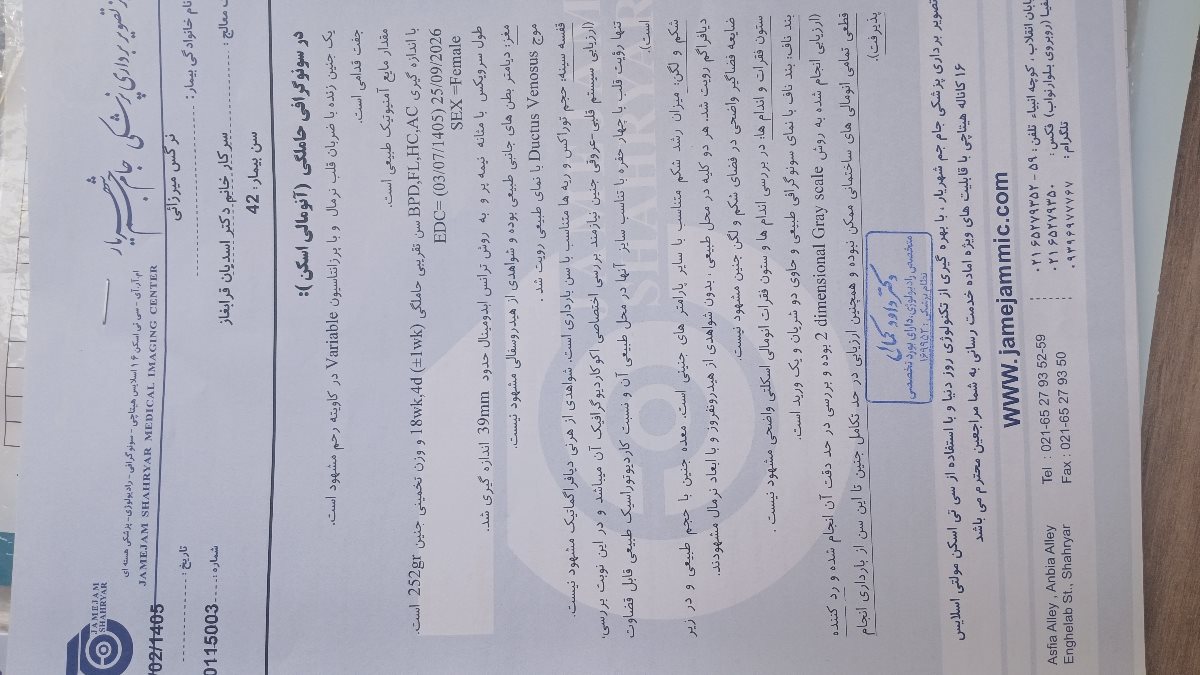 JAMEJAM
SHAHRYAR
ام آر آی - سی تی اسکن ۱۶ اسلایس هیتاچی - سونوگرافی - رادیولوژی - پزشکی هسته ای
JAMEJAM SHAHRYAR MEDICAL IMAGING CENTER
تصویر برداری پزشکی جام جم شهریار
نام خانوادگی بیمار :
نرگس میرزائی
تاریخ :
/02/1405
معالج :
سرکار خانم دکتر اسدیان قراباغاز
شماره :
0115003
سن بیمار: 42
در سونوگرافی حاملگی (آنومالی اسکن):
یک جنین زنده با ضربان قلب نرمال و با پرزانتاسیون Variable در کاویته رحم مشهود است.
جفت قدامی است.
مقدار مایع آمنیوتیک طبیعی است.
با اندازه گیری BPD,FL,HC,AC سن تقریبی حاملگی 18wk,4d (±1wk) و وزن تخمینی جنین 252gr است.
EDC= (03/07/1405) 25/09/2026
SEX =Female
طول سرویکس با مثانه نیمه پر و به روش ترانس ابدومینال حدود 39mm اندازه گیری شد.
مغز: دیامتر بطن های جانبی طبیعی بوده و شواهدی از هیدروسفالی مشهود نیست.
موج Ductus Venosus با نمای طبیعی رویت شد.
قفسه سینه: حجم توراکس و ریه ها متناسب با سن بارداری است. شواهدی از هرنی دیافراگماتیک مشهود نیست.
(ارزیابی سیستم قلبی-عروقی جنین نیازمند بررسی اختصاصی اکوکاردیوگرافیک آن میباشد و در این نوبت بررسی،
تنها رویت قلب با چهار حفره با تناسب سایز آنها در محل طبیعی آن و نسبت کاردیوتوراسیک طبیعی قابل قضاوت
است).
شکم و لگن: میزان رشد شکم متناسب با سایر پارامتر های جنینی است. معده جنین با حجم طبیعی و در زیر
دیافراگم رویت شد. هر دو کلیه در محل طبیعی ، بدون شواهدی از هیدرونفروز و با ابعاد نرمال مشهودند.
ضایعه فضاگیر واضحی در فضای شکم و لگن جنین مشهود نیست.
ستون فقرات و اندام ها: در بررسی اندام ها و ستون فقرات انومالی اسکلتی واضحی مشهود نیست .
بند ناف: بند ناف با نمای سونوگرافی طبیعی و حاوی دو شریان و یک ورید است.
(ارزیابی انجام شده به روش 2 dimensional Gray scale بوده و بررسی در حد دقت آن انجام شده و رد کننده
قطعی تمامی انومالی های ساختمانی ممکن نبوده و همچنین ارزیابی در حد تکامل جنین تا این سن از بارداری انجام
پذیرفت).
دکتر داوود کمالی
متخصص رادیولوژی، دارای بورد تخصصی
نظام پزشکی: ۱۶۹۹۵۲
تصویر برداری پزشکی جام جم شهریار ، با بهره گیری از تکنولوژی روز دنیا و با استفاده از سی تی اسکن مولتی اسلایس
۱۶ کاناله هیتاچی با قابلیت های ویژه آماده خدمت رسانی به شما مراجعین محترم می باشد
www.jamejammic.com
خیابان انقلاب ، کوچه انبیاء تلفن : ۵۹ - ۰۲۱۶۵۲۷۹۳۵۲
(روبروی بلوار نواب) فکس : ۰۲۱۶۵۲۷۹۳۵۰
تلگرام : ۰۹۳۹۶۹۷۷۷۶۷
Asfia Alley , Anbia Alley
Enghelab St., Shahryar
Tel : 021-65 27 93 52-59
Fax : 021-65 27 93 50